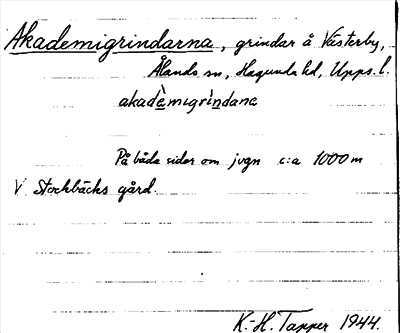 Akademigrindarna, grindar å Västerby,
Ålands sn, Hagunda hd, Upps. l.
akadèmigrìndanɑ
På båda sidor om jvgn c:a 1000 m
V Stockbäcks gård.
K.-H. Tapper 1944.